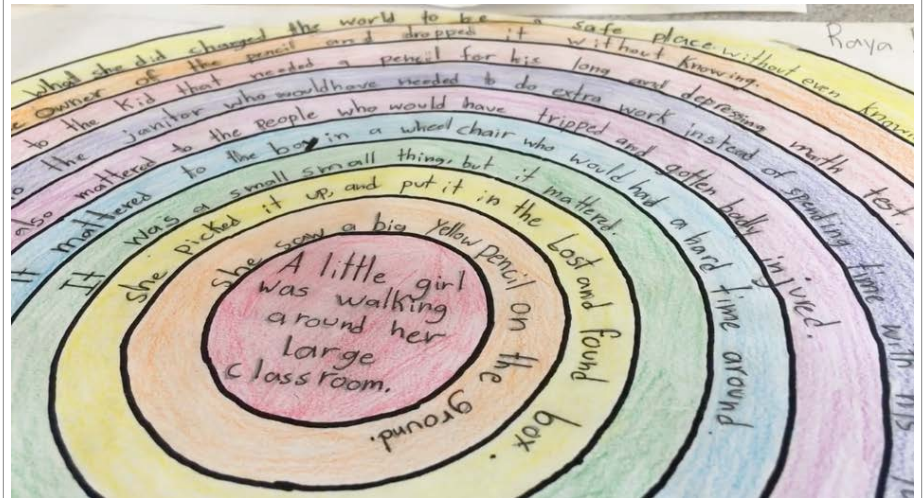 Raya
A little girl
was walking
around her
large
classroom.
She saw a big yellow pencil on the ground.
she picked it up, and put it in the lost and found box.
It was a small small thing, but it mattered.
It mattered to the boy in a wheel chair who would had a hard time around
also mattered to the people who would have tripped and gotten badly injured.
the janitor who wouldhave needed to do extra work instead of spending time with his
to the kid that needed a pencil for his long and depressing math test
owner of the pencil and dropped it without knowing.
What she did changed the world to be a safe place without even